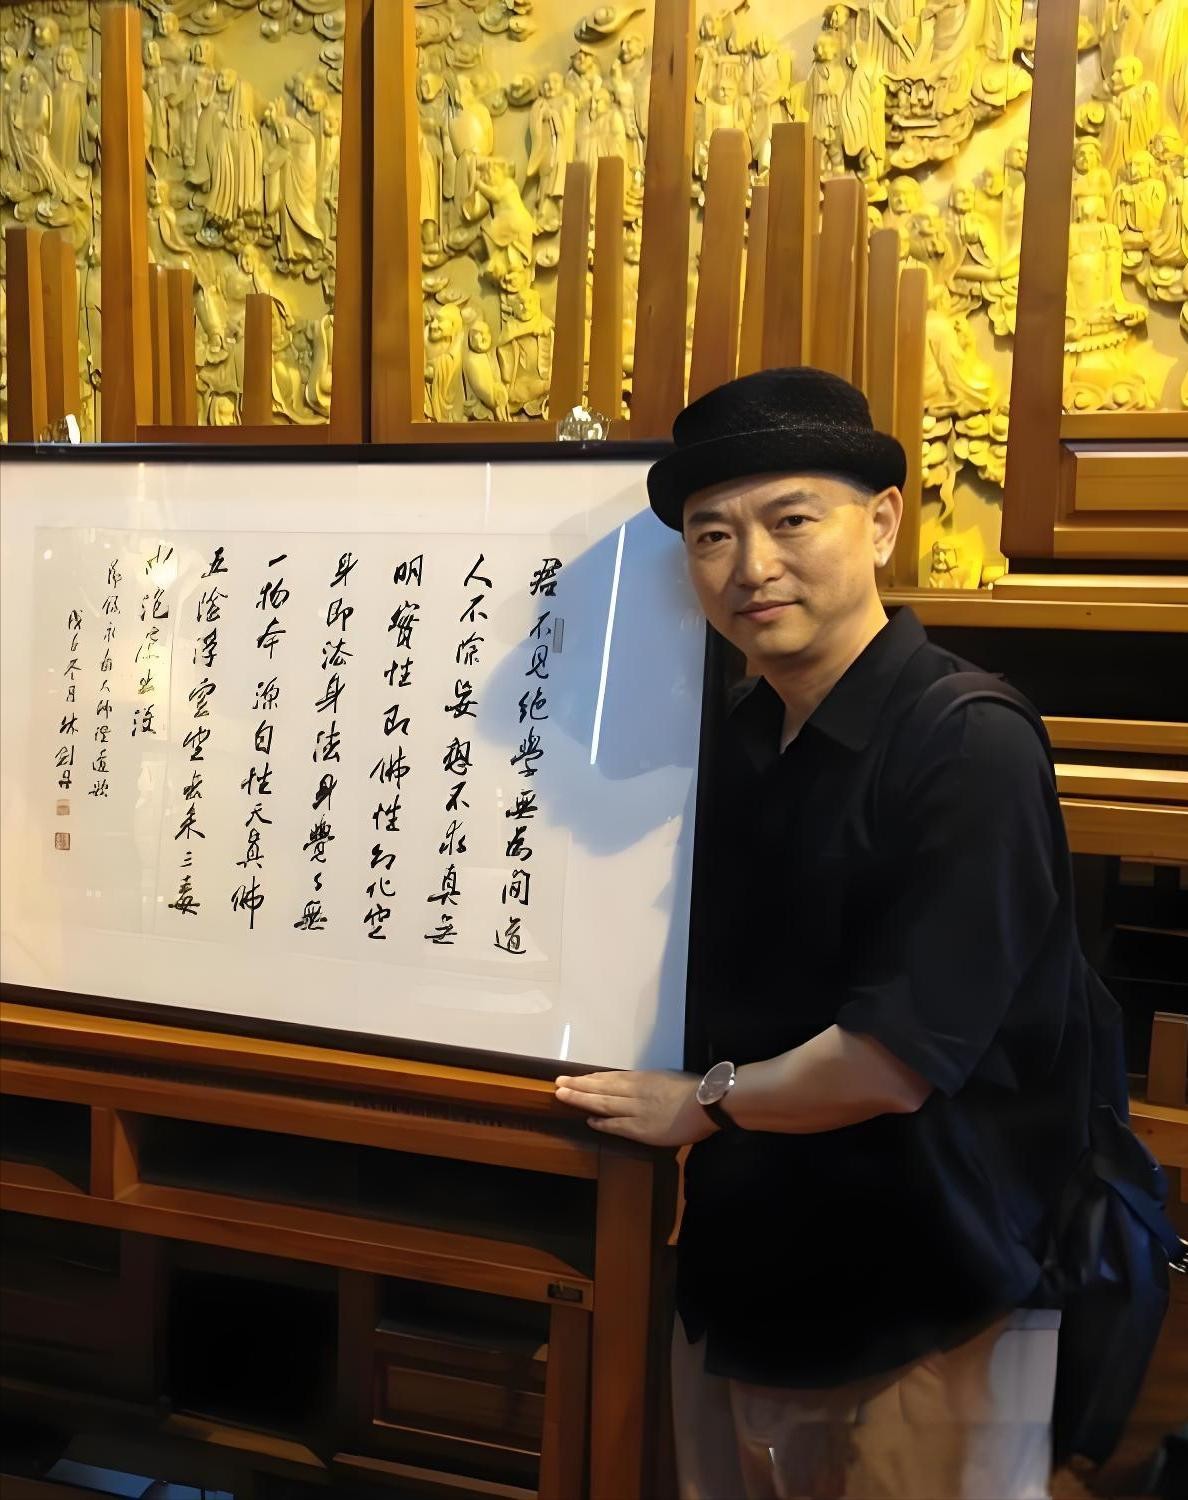 君不見絕學無為閒道
人不除妄想不求真無
明實性即佛性幻化空
身即法身法身覺了無
一物本源自性天真佛
五陰浮雲空去來三毒
水泡虛出沒
錄永嘉大師證道歌
戊戌冬月林劍丹